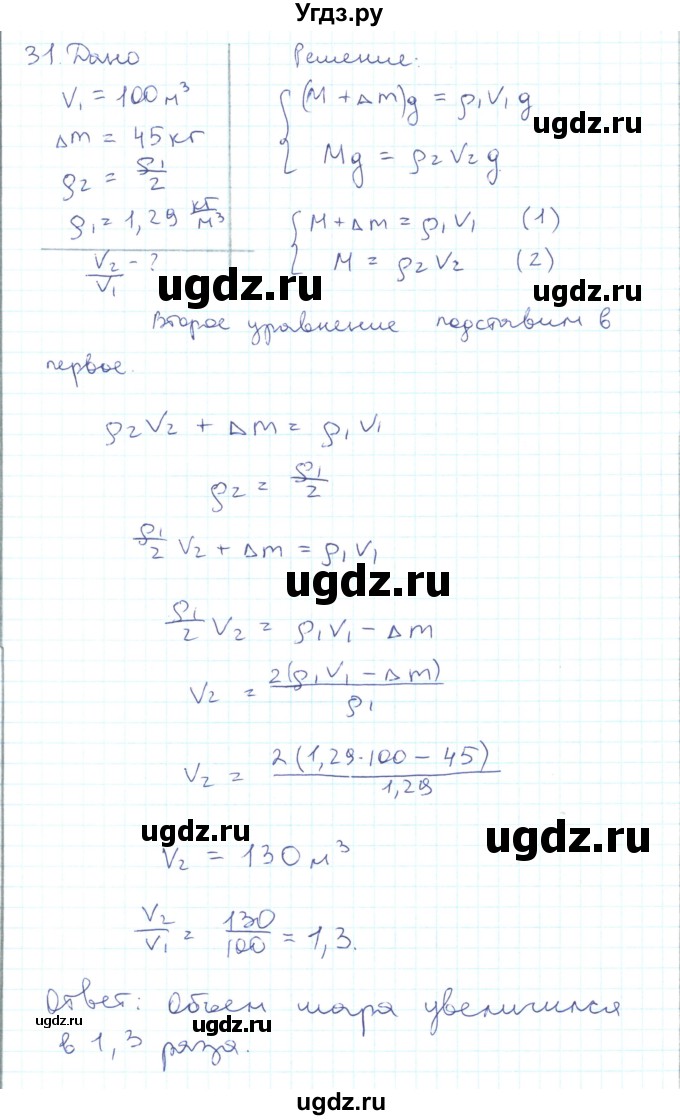 Угдз.ру
31. Дано
V₁ = 100 м³
Δm = 45 кг
ρ₂ = ρ₁/2
ρ₁ = 1,29 кг/м³
V₂/V₁ - ?
Решение:
{ (M + Δm)g = ρ₁V₁g
Mg = ρ₂V₂g
ugdz.ru
{ M + Δm = ρ₁V₁ (1)
M = ρ₂V₂ (2)
ugdz.ru
ugdz.ru
Второе уравнение подставим в
первое.
ρ₂V₂ + Δm = ρ₁V₁
ρ₂ = ρ₁/2
ρ₁/2 V₂ + Δm = ρ₁V₁
ugdz.ru
ρ₁/2 V₂ = ρ₁V₁ - Δm
V₂ = 2(ρ₁V₁ - Δm)/ρ₁
V₂ = 2(1,29·100 - 45)/1,29
ugdz.ru
ugdz.ru
V₂ = 130 м³
V₂/V₁ = 130/100 = 1,3.
Ответ: Объем шара увеличился
ugdz.ru
ugdz.ru
в 1,3 раза.
ugdz.ru